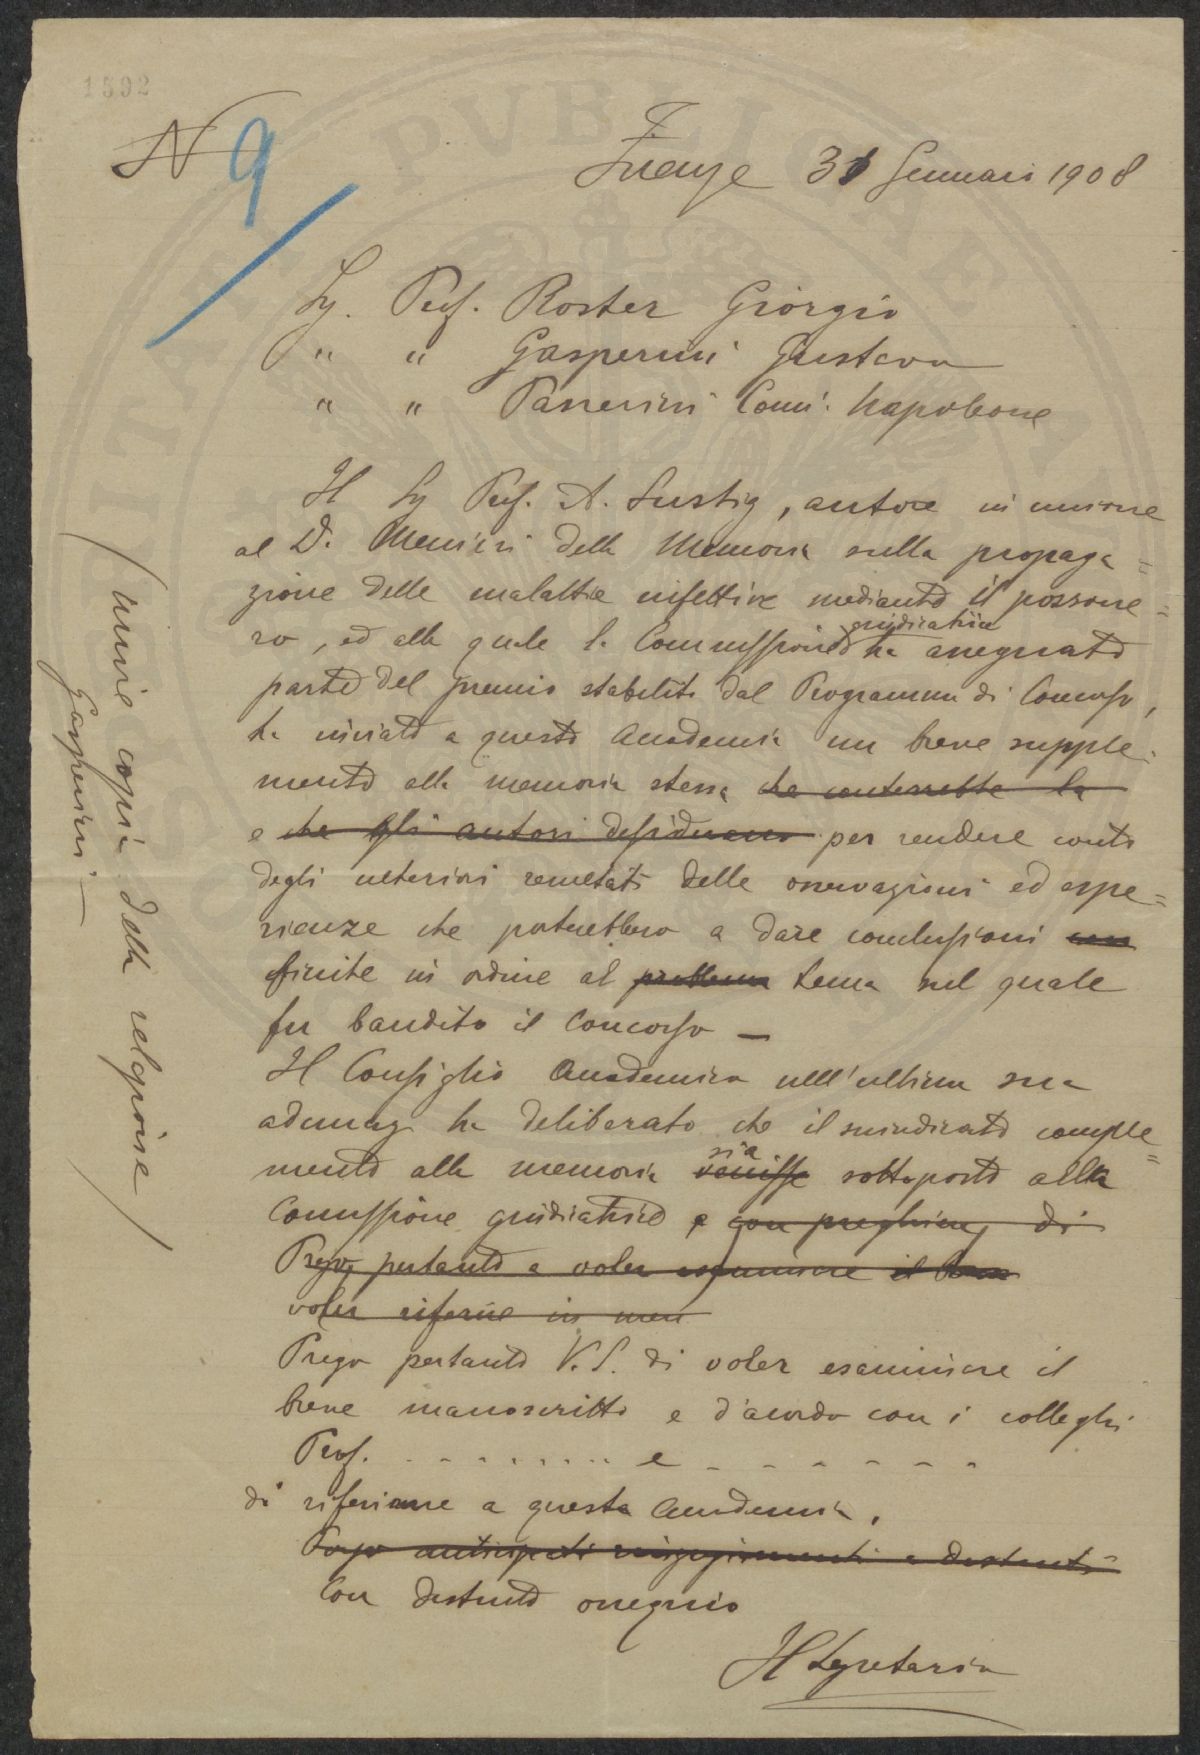 1592
N 9
Firenze 31 Gennaio 1908
Sig. Prof. Roster Giorgio
" " Gasperini Gustavo
" " Passerini Com. Napoleone
Il Sig Prof. A. Lustig, autore in unione
al D. della Memoria sulla propaga=
zione delle malattie infettive mediante il passone=
ro, ed alla quale la Commissione giudicatrice ha assegnato
parte del premio stabilito dal Programma di Concorso,
ha inviato a questa Accademia un breve supple-
mento alla memoria stessa che conterrebbe la
e che gli autori desiderano per rendere conto
degli ulteriori resultati delle osservazioni ed espe=
rienze che porterebbero a dare conclusioni con
finite in ordine al problema tema sul quale
fu bandito il Concorso —
Il Consiglio Accademico nell'ultima sua
adunaz. ha deliberato che il suindicato comple=
mento alla memoria venisse sia sottoposto alla
Commissione giudicatrice e con preghiera di
Prego pertanto a voler esaminare il breve
voler riferire in
Prego pertanto V. S. di voler esaminare il
breve manoscritto e d'acordo con i colleghi
Prof. . - - - . . . . . . e - - - - - - -
di riferirne a questa Accademia.
Porgo anticipati ringraziamenti e distinti
Con distinto ossequio
Il Segretario
(unire copia della relazione)
Gasperini —